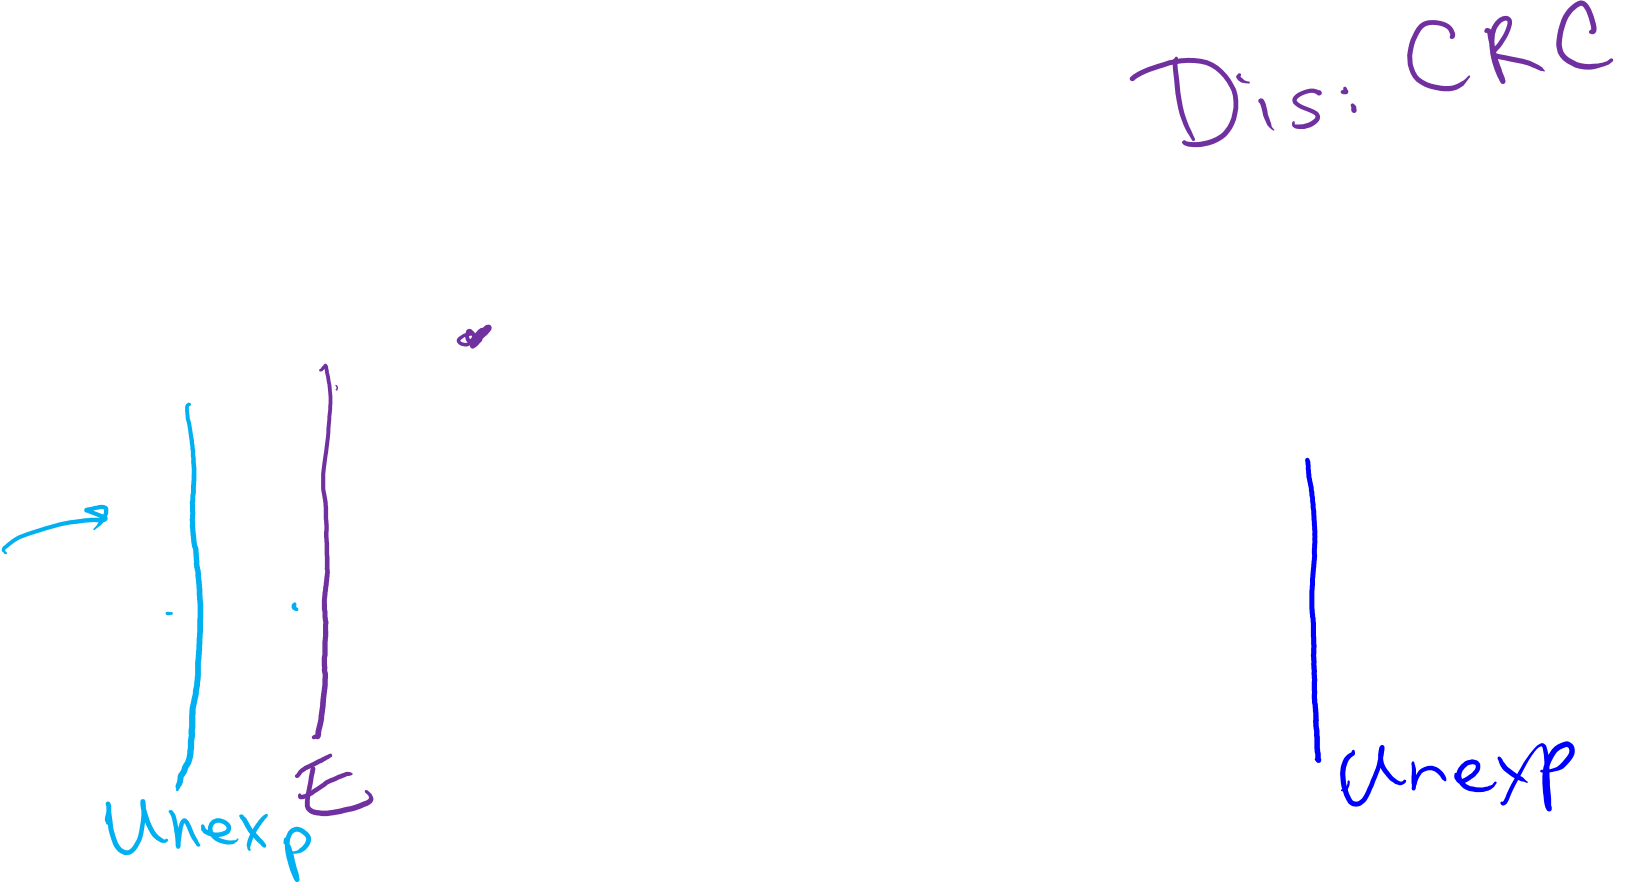 Dis: CRC
E
Unexp
Unexp